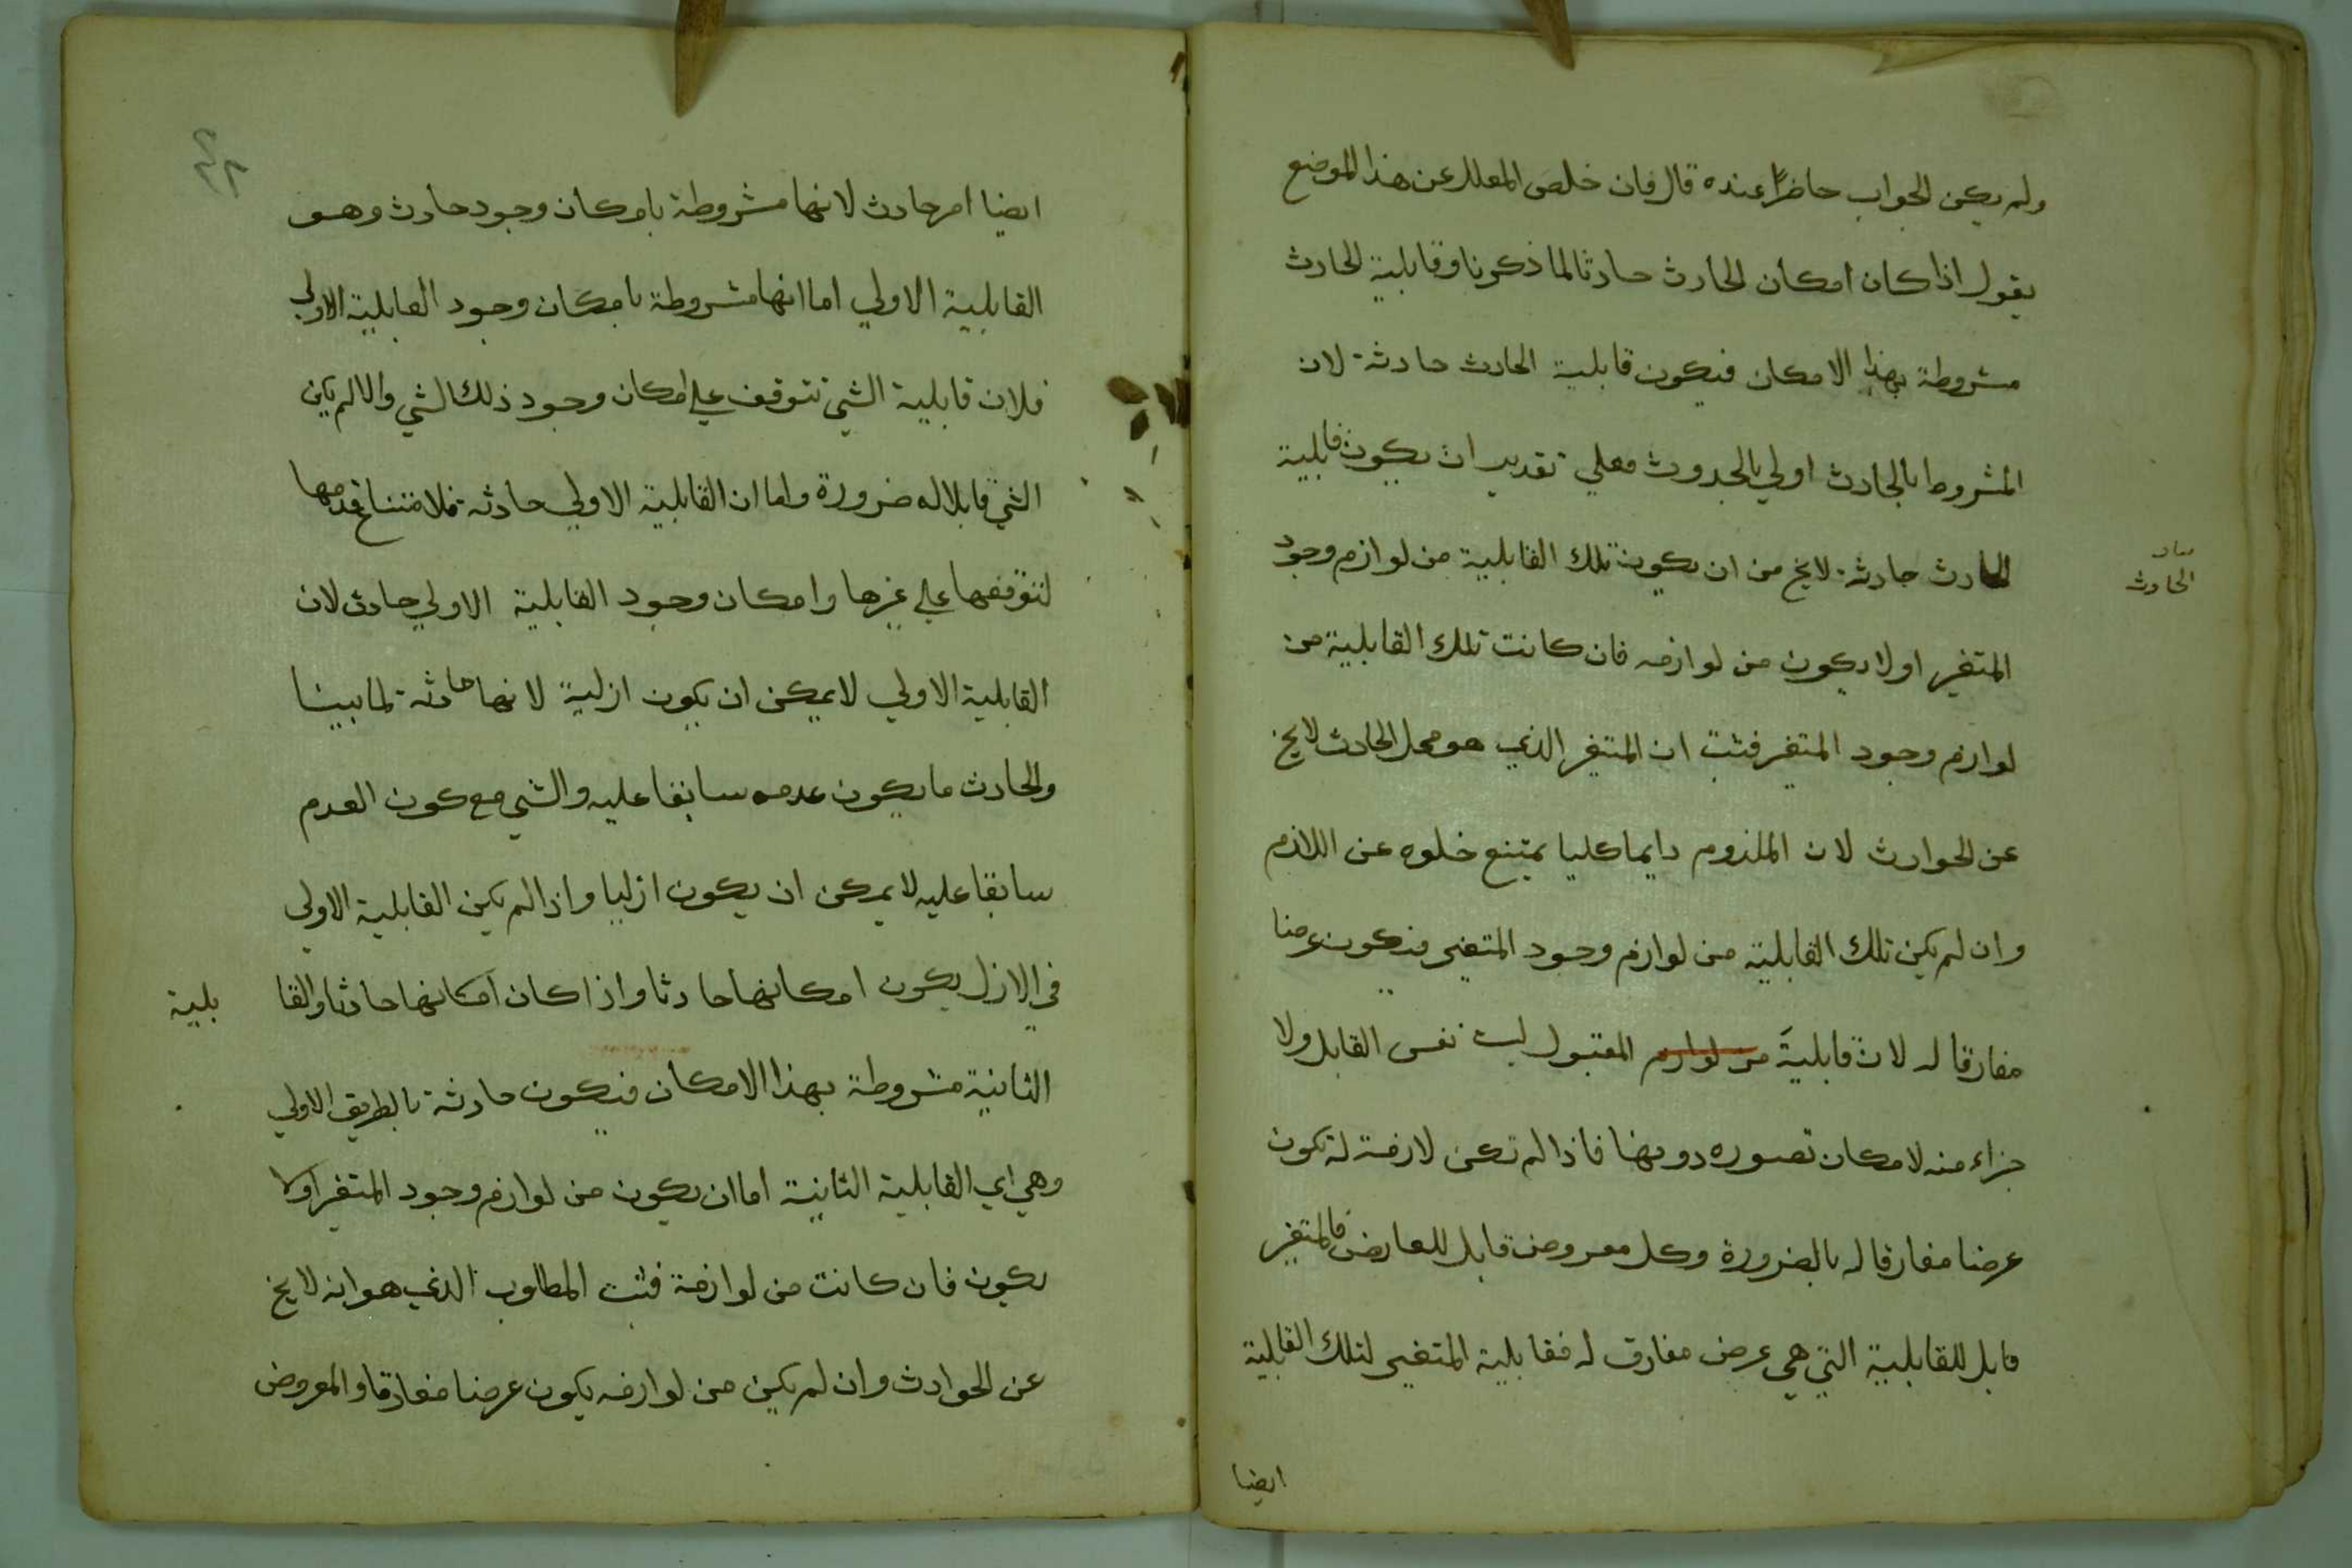 ولم يكن الجواب حاضرًا عنده قال فان خلص المعلل عن هذا الموضع
يقول اذا كان امكان الحادث حادثا لما ذكرنا وقابلية الحادث
مشروطة بهذا الامكان فيكون قابلية الحادث حادثة لان
المشروط بالحادث اولي بالحدوث فعلي تقدير ان يكون قابلية
الحادث حادثة لايخ من ان يكون تلك القابلية من لوازم وجود
الحادث
المتغير اولا يكون من لوازمه فان كانت تلك القابلية من
لوازم وجود المتغير فثبت ان المتغير الذي هو محل الحادث لايخ
عن الحوادث لان الملزوم دايما كليا يمتنع خلوه عن اللازم
وان لم يكن تلك القابلية من لوازم وجود المتغير فيكون عرضا
مفارقا له لان قابلية من لوازم المقبول ليست نفس القابل ولا
جزاء منه لامكان تصوره دونها فاذا لم تكن لازمة له تكون
عرضا مفارقا له بالضرورة وكل معروض قابل للعارض فالمتغير
قابل للقابلية التي هي عرض مفارق له فقابلية المتغير لتلك القابلية
ايضا
٢٢
ايضا امر حادث لانها مشروطة بامكان وجود حادث وهو
القابلية الاولي اما انها مشروطة بامكان وجود القابلية الاولي
فلان قابلية الشي تتوقف علي امكان وجود ذلك الشي والا لم يكن
الشي قابلا له ضرورة واما ان القابلية الاولي حادثة فلامتناع قدمها
لتوقفها علي غيرها وامكان وجود القابلية الاولي حادث لان
القابلية الاولي لا يمكن ان يكون ازلية لانها حادثة لما بينا
والحادث ما يكون عدمه سابقا عليه والشي مع كون العدم
سابقا عليه لا يمكن ان يكون ازليا واذا لم يكن القابلية الاولي
في الازل يكون امكانها حادثا واذا كان امكانها حادثا والقا بلية
الثانية مشروطة بهذا الامكان فيكون حادثة بالطريق الاولي
وهي اي القابلية الثانية اما ان يكون من لوازم وجود المتغير اولا
يكون فان كانت من لوازمه فثبت المطلوب الذي هو انه لايخ
عن الحوادث وان لم يكن من لوازمه يكون عرضا مفارقا والمعروض